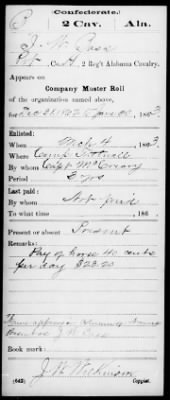 (Confederate.)
B 2 Cav. Ala.
J. W. Case
Pvt, Co. H, 2 Reg't Alabama Cavalry.
Appears on
Company Muster Roll
of the organization named above,
for 186 3.
Enlisted:
When March 4, 186 3.
Where Camp
By whom Capt
Period 3 yrs
Last paid:
By whom Not paid
To what time , 186 .
Present or absent Present
Remarks:
Pay of horse 40 cents
per day $23.20
Book mark:
J. W. Wilkinson
(642) Copyist.